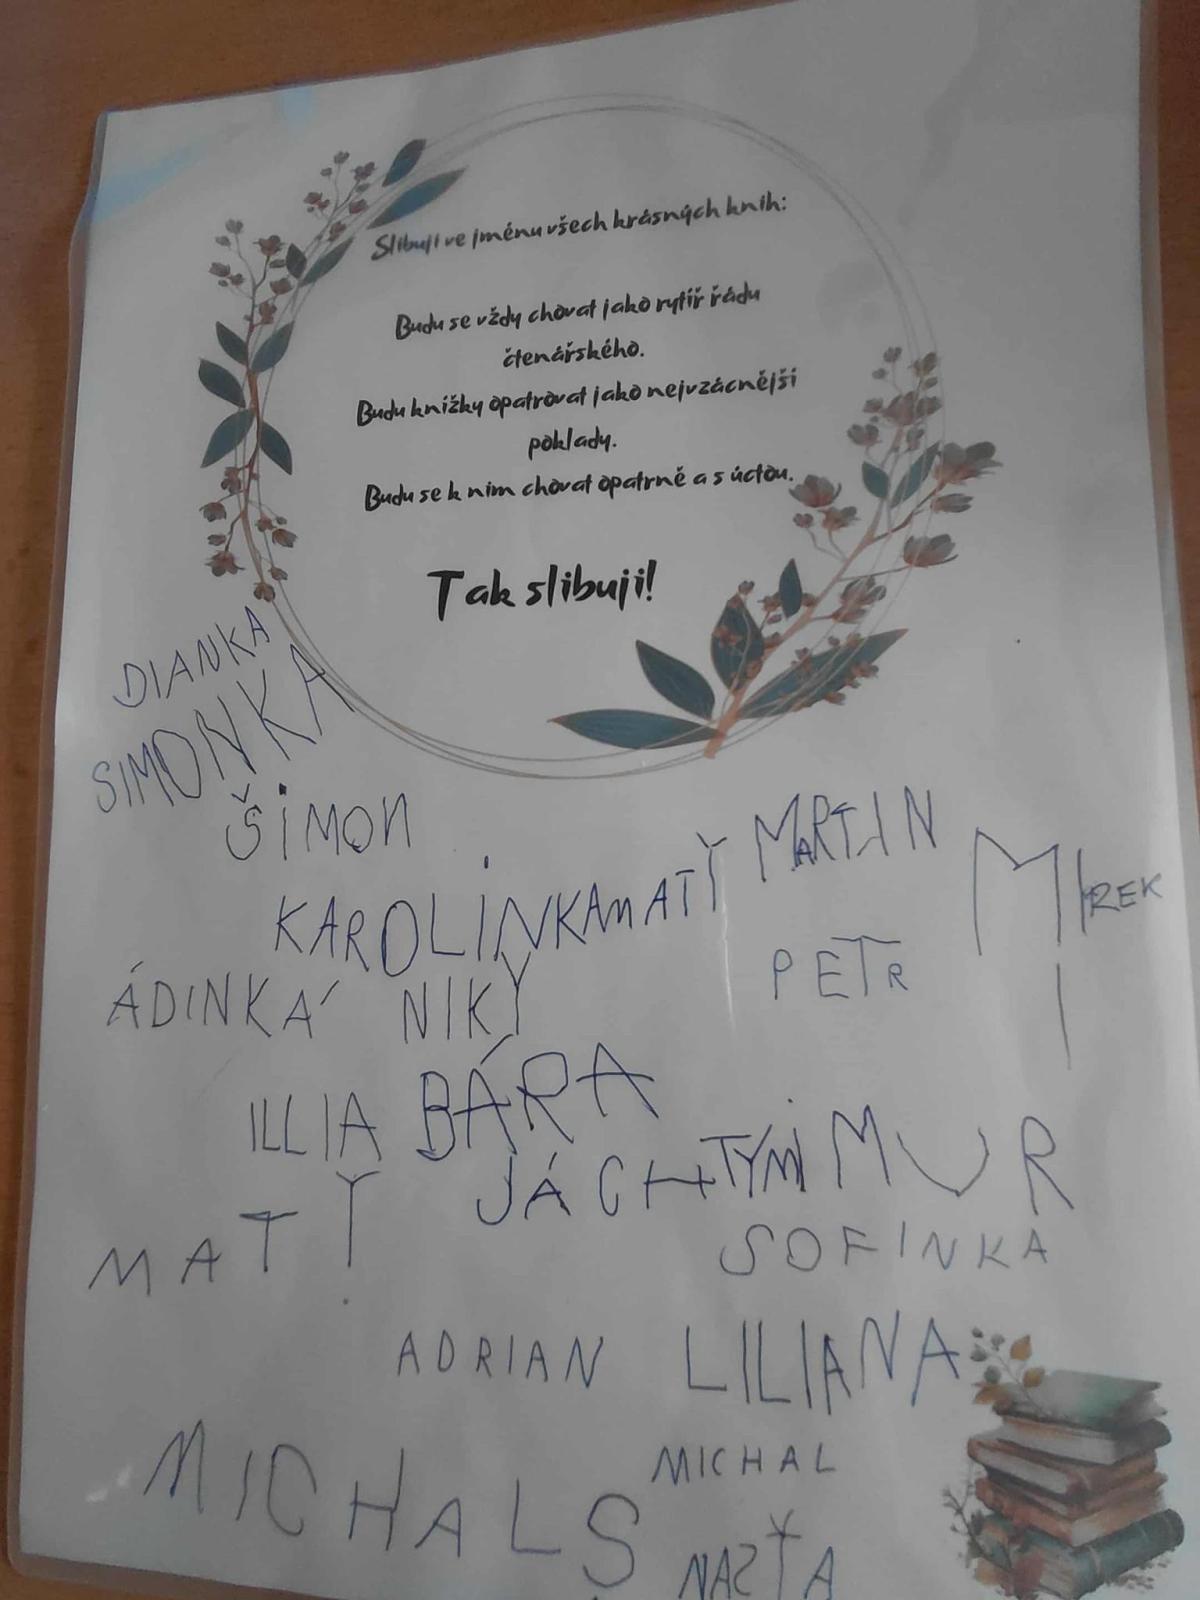 Slibuji ve jménu všech krásných knih:
Budu se vždy chovat jako rytíř řádu
čtenářského.
Budu knížky opatrovat jako nejvzácnější
poklady.
Budu se k nim chovat opatrně a s úctou.
Tak slibuji!
DIANKA
SIMONKA
ŠIMON
MARTIN
KAROLINKA MATY
MIREK
PETR
ÁDINKÁ NIKY
ILLIA BÁRA
JÁCHTÝMIMUR
MATY
SOFINKA
ADRIAN LILIANA
MICHAL S
MICHAL
NASŤA